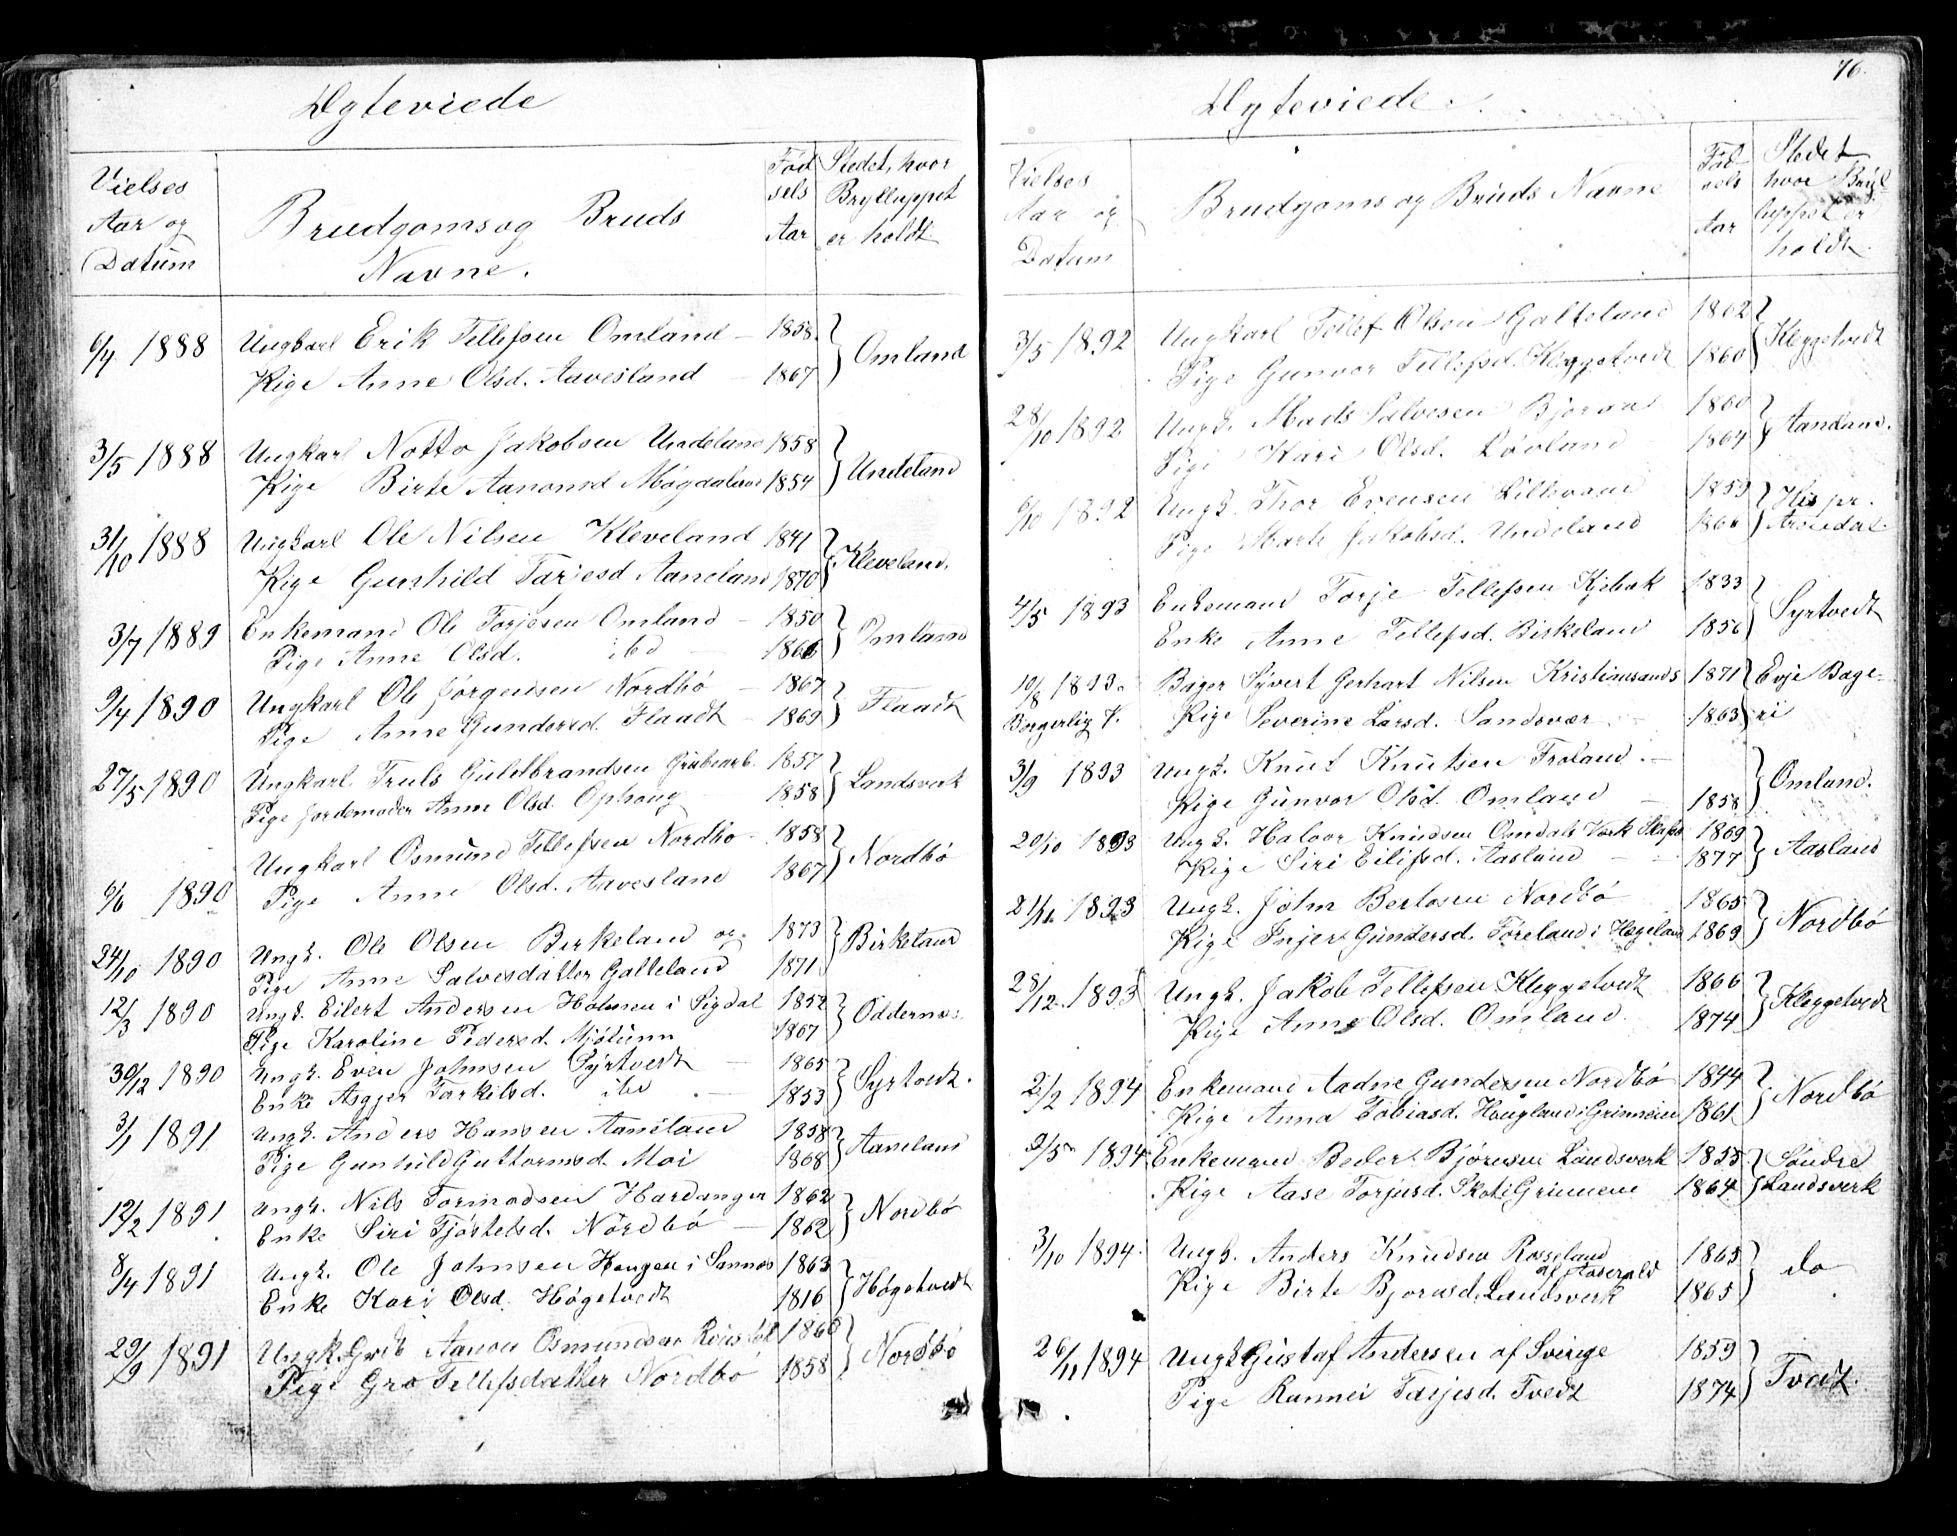 Ægteviede
Vielses Aar og Datum
Brudgoms og Bruds Navne.
Fødsels Aar
Stedet, hvor Brylluppet er holdt.
6/4 1888 Ungkarl Erik Tellefsen Omland — 1858. } Omland
Pige Anne Olsd. Aavesland — 1867
3/5 1888 Ungkarl Notto Jakobsen Undeland 1858 } Undeland
Pige Birte Aanonsd Møgdaland 1854
31/10 1888 Ungkarl Ole Nilsen Kleveland 1841 } Kleveland.
Pige Gunhild Tarjesd Aaneland 1870
3/7 1889 Enkemand Ole Torjesen Omland — 1850 } Omland
Pige Anne Olsd. ibd — 1866
9/4 1890 Ungkarl Ole Jørgensen Nordbö — 1867 } Flaadt
Pige Anne Gundersd. Flaadt — 1869
27/5 1890 Ungkarl Truls Guldbrandsen Grubearb. 1857 } Landsverk
Pige Jordemoder Anne Olsd. Ophoug 1858
Ungkarl Osmund Tellefsen Nordbo — 1858 } Nordbö
6/6 1890 Pige Anne Olsd. Aavesland 1867
24/10 1890 Ungk. Ole Olsen Birkeland og 1873 } Birkeland
Pige Anne Salvesdatter Galteland 1871
12/3 1890 Ungk. Eilert Andersen Holmen i Sigdal 1852 } Oddernæs
Pige Karoline Pedersd. Mjölunn 1867
30/12 1890 Ungk. Even Johnsen Syrtvedt — 1865 } Syrtvedt.
Enke Asgjer Torkelsd. ibd — 1853
3/1 1891 Ungk. Anders Hansen Aaneland 1858 } Aaneland
Pige Gunhild Guttormsd. Moi 1868
12/2 1891 Ungk. Nils Tormodsen Hardanger 1862 } Nordbö
Enke Siri Kjöstelsd. Nordbö — 1862
8/4 1891 Ungk. Ole Johnsen Haugen i Sannes 1863 } Høgetvedt
Enke Kari Olsd. Høgetvedt 1816
29/9 1891 Ungk. Aanon Osmundsen 1860 } Nordbö
Pige Gro Tellefsdatter Nordbö 1858
76.
Ægteviede.
Vielses Aar og Datum
Brudgoms og Bruds Navne
Fødsels Aar
Stedet hvor Brylluppet er holdt.
3/5 1892 Ungkarl Tellef Olsen Galteland 1862 } Kleggetvedt
Pige Gunvor Tellefsd. Kleggetvedt 1860
28/10 1892 Ungk. Mads Salvesen Bjoraa 1860 } Aandand.
Pige Kari Olsd. Løvland 1864
6/10 1892 Ungk. Thor Evensen Lillevand 1859 } His pr.
Pige Marte Jakobsd. Undeland Arendal
4/5 1893 Enkemand Torje Tellefsen Kjebæk 1833 } Syrtvedt
Enke Anne Tellefsd. Birkeland 1856
10/8 1893. Bager Syvert Gerhart Nilsen Kristiansands 1871 } Evje Bage-
Borgerlig V. Pige Severine Larsd. Sandsvær — 1863 ri
3/9 1893 Ungk. Knut Knutsen Froland. — } Omland.
Pige Gunvor Olsd. Omland — 1858
20/10 1893 Ungk. Halvor Knudsen Omdals Værk 1869 } Aasland
Pige Siri Eilifsd. Aasland — 1877
21/11 1893 Ungk. John Bertosen Nordbö 1865 } Nordbö
Pige Injer Gundersd. Föreland i Hægeland 1869
28/12. 1893 Ungk. Jakob Tellefsen Kleggetvedt 1866 } Kleggetvedt
Pige Anne Olsd. Omland. 1874
2/2 1894 Enkemand Aadne Gundersen Nordbö 1844 } Nordbö
Pige Anna Tobiasd. Haugland i Grinneim 1861
9/5 1894 Enkemand Beder Björnsen Landsverk 1855 } Søndre
Pige Aase Torjusd. Skot i Grinneim 1864 Landsverk
3/10 1894. Ungk. Anders Knudsen Rosseland 1865 } do
af Aaserald
Pige Birte Bjornsd. Landsverk 1865
26/11 1894 Ungk. Gustaf Andersen af Sverige 1859 } Tvedt.
Pige Rannei Tarjesd. Tvedt 1874